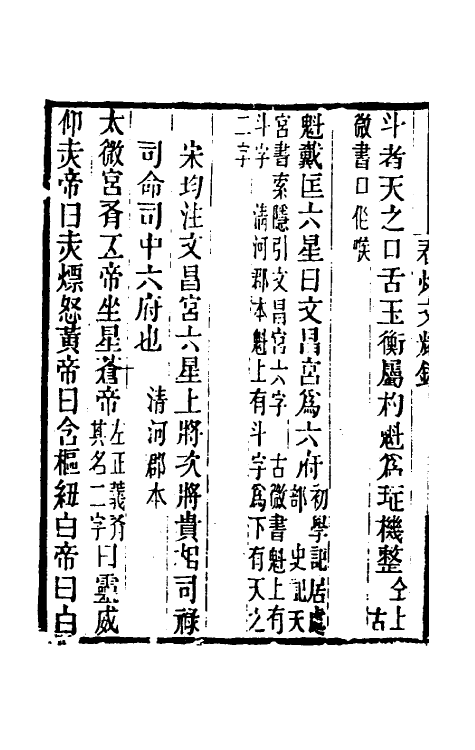 斗者天之口舌玉衡屬杓魁爲琁機整仝上 古
微書口作喉
魁戴匡六星曰文昌宮爲六府初學記居處部 史記天
宮書索隱引文昌宮六字 古微書魁上有
斗字 清河郡本魁上有斗字爲下有天之
二字
宋均注文昌宮六星上將次將貴相司祿
司命司中六府也 清河郡本
太微宮有五帝坐星蒼帝左正義有其名二字曰靈威
仰赤帝曰赤熛怒黃帝曰含樞紐白帝曰白